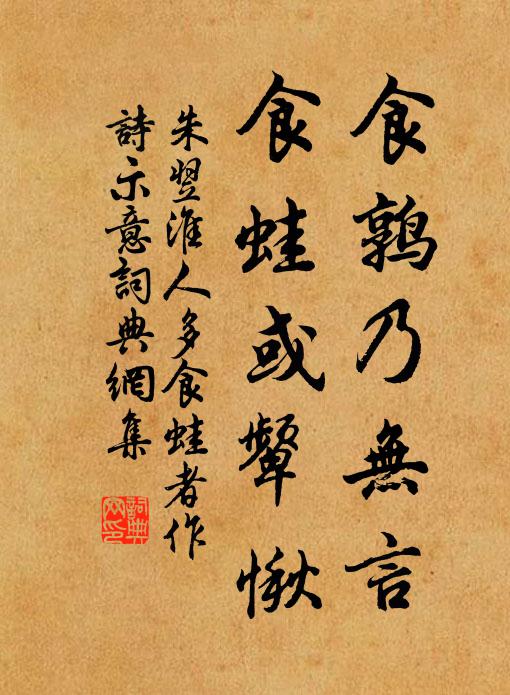 食鶉乃無言
食蛙或顰愀
朱翌淮人多食蛙者作
詩示意詞典網集
詞典
网印